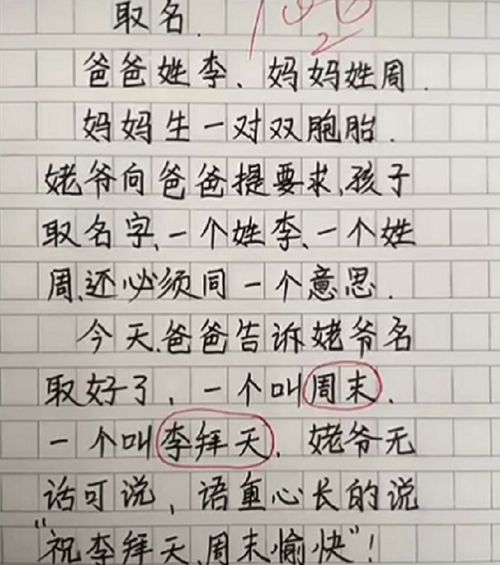 取名.
爸爸姓李、妈妈姓周.
妈妈生一对双胞胎.
姥爷向爸爸提要求,孩子
取名字,一个姓李、一个姓
周,还必须同一个意思.
今天,爸爸告诉姥爷名
取好了,一个叫周末、
一个叫李拜天,姥爷无
话可说,语重心长的说
"祝李拜天,周末愉快"!